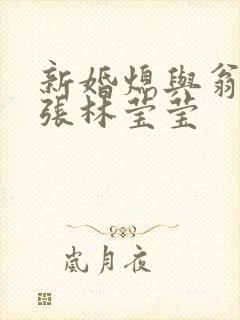 新婚熄與翁
張林莹莹
嵐月夜